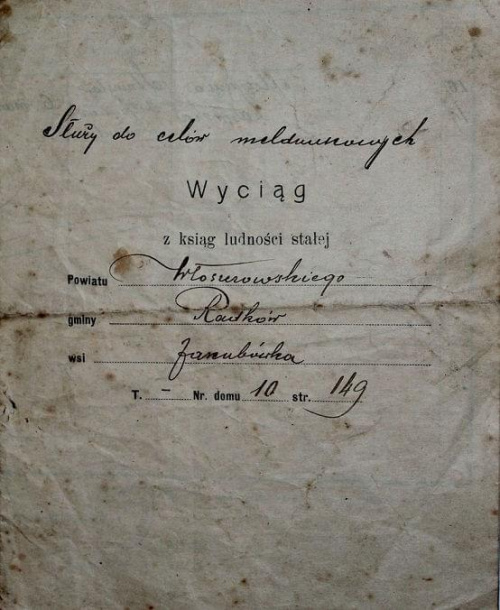 Służy do celów meldunkowych
Wyciąg
z ksiąg ludności stałej
Powiatu Włoszczowskiego
gminy Radków
wsi Jakubówka
T. – Nr. domu 10 str. 149